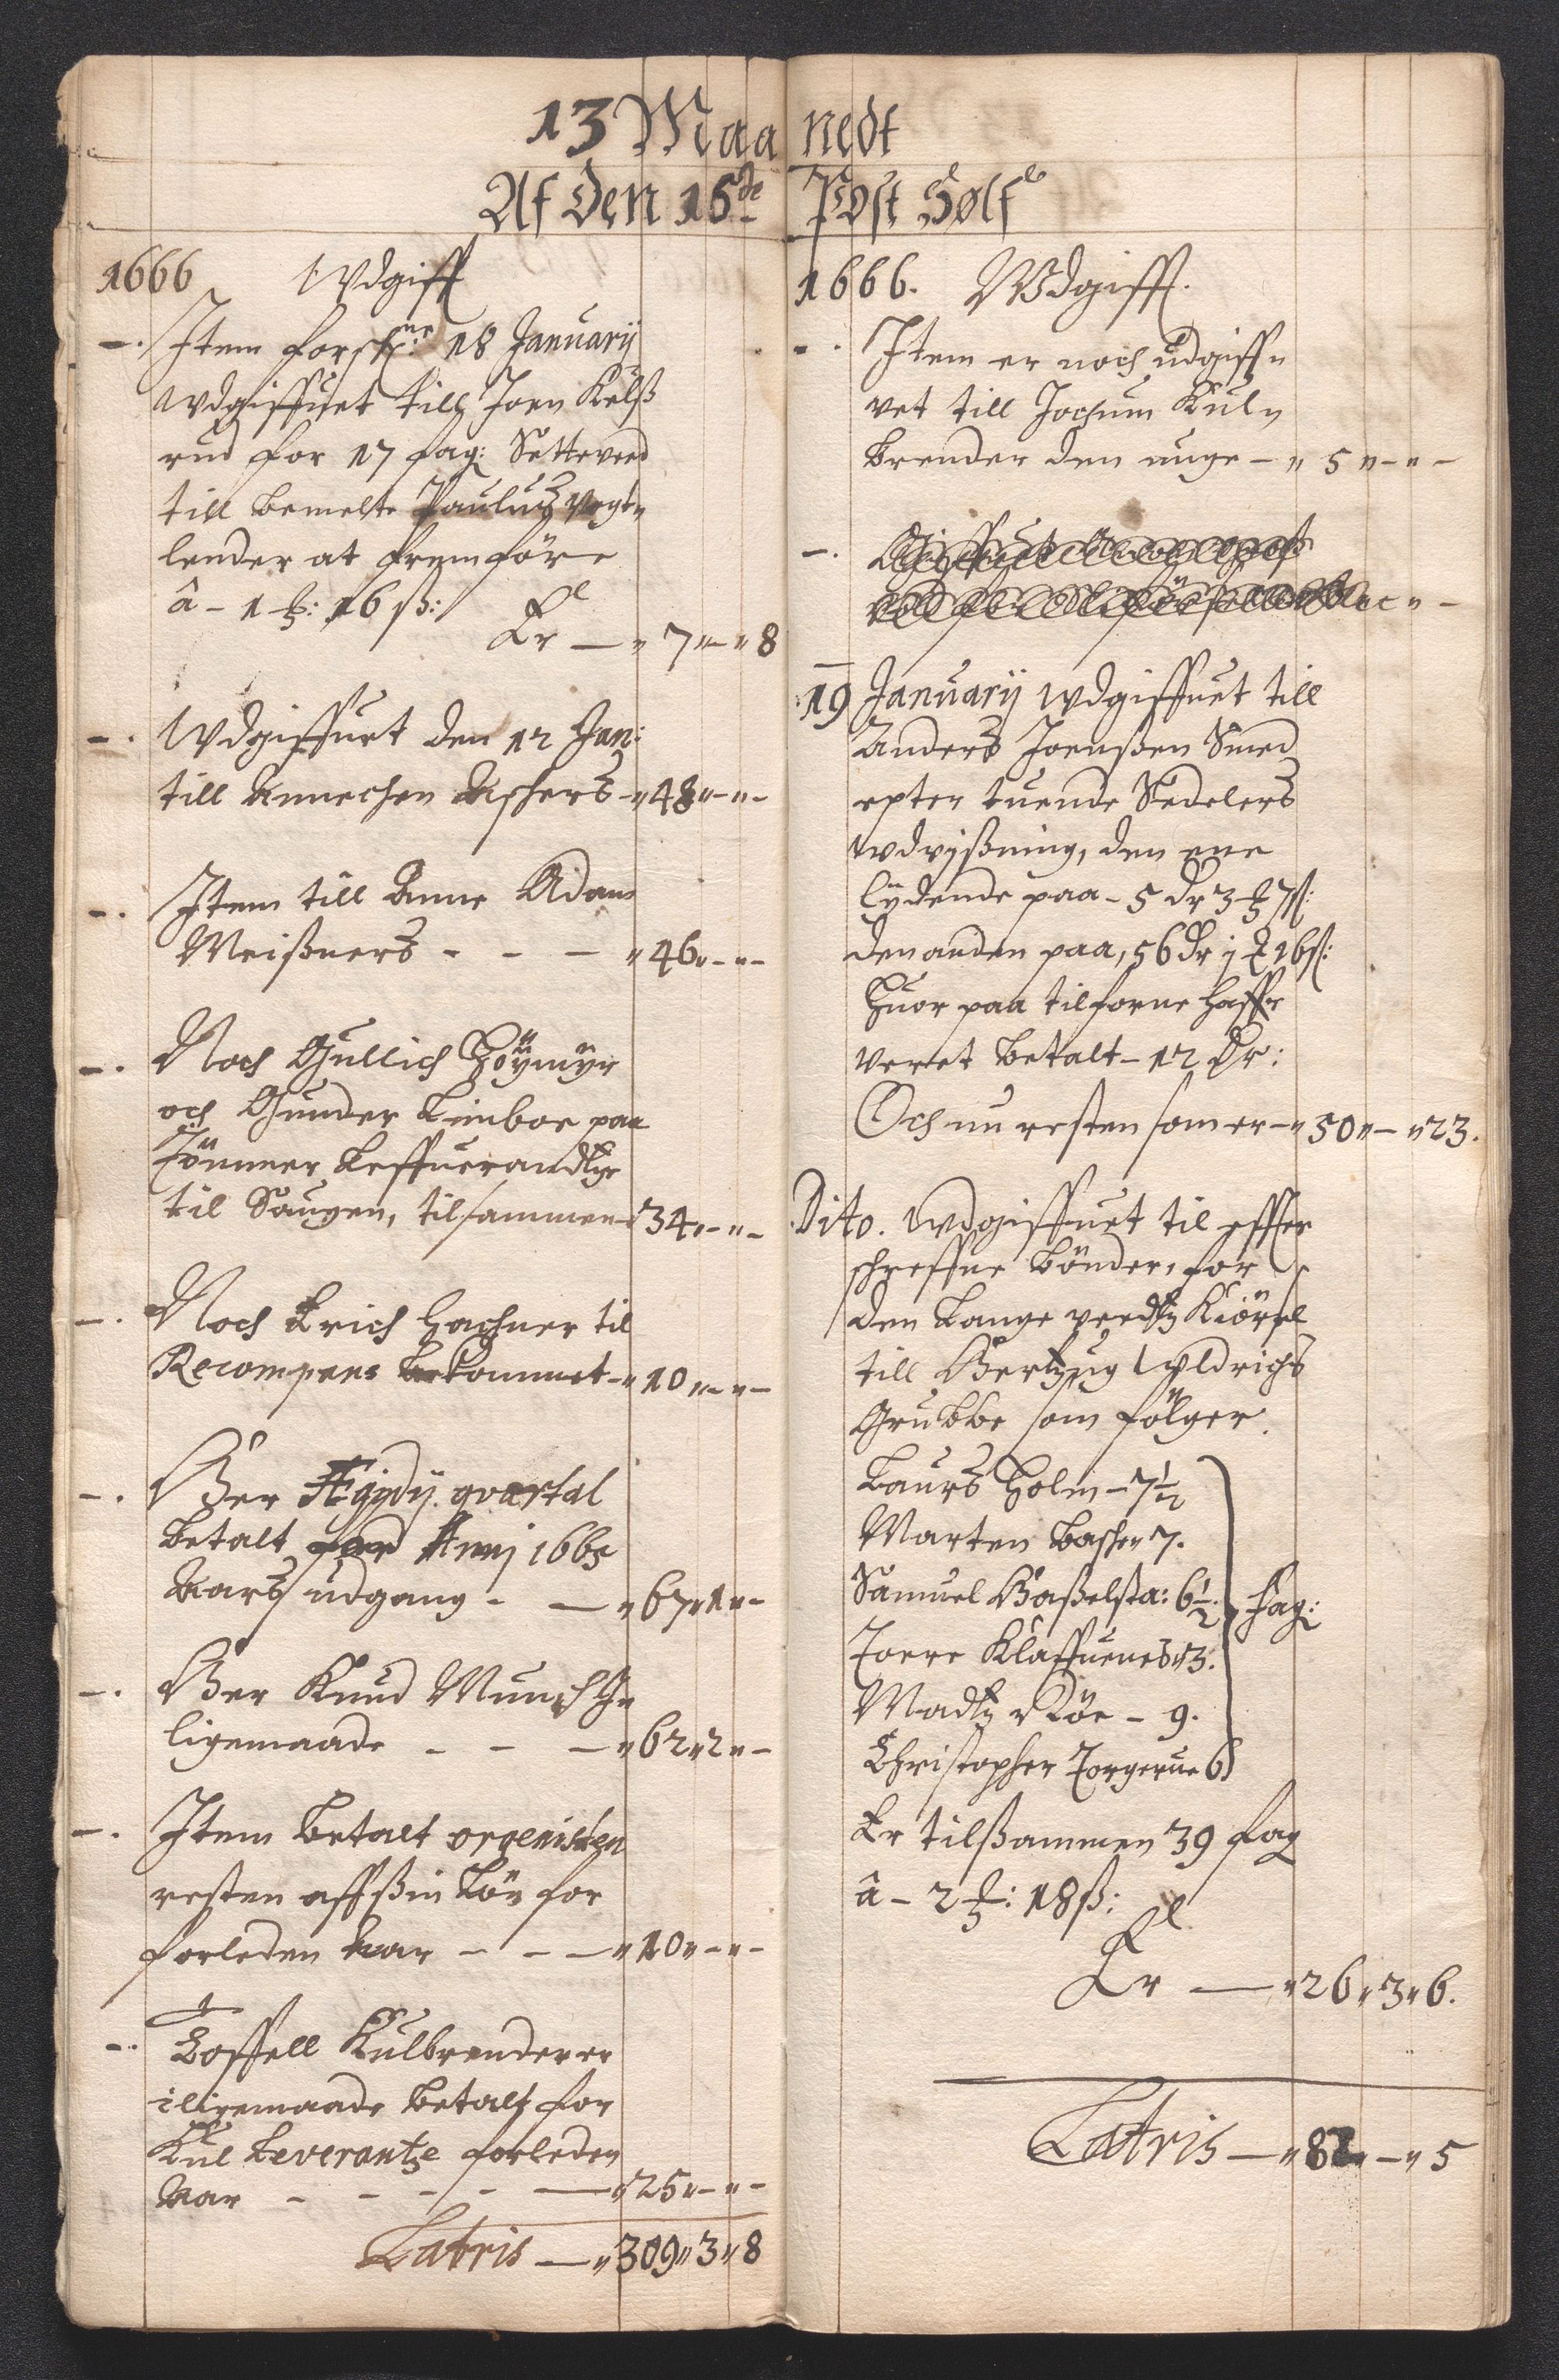 13 Maanedt
Af Den 15de Post Sølf
1666 Wdgifft
Item forsch:ne 18 Januarij
Wdgiffuet till Joen Kelß
rud for 17 fag: Setteveed
till bemelte Paulus Vogt„
lender at fremføre
â - 1 ß: 16 ß:
Er — „ 7 „ - „ 8
Wdgiffuet den 12 Jan:
till Annechen Aschers - „ 48 „ - „ -
Item till Anne Adam
Meißners - - - „ 46 „ - „ -
Noch Gullich Høymyr
och Gunder Limboe paa
Tømmer
til Saugen, tilsammen - 34 „ - „ -
Noch Erich Hachner til
Recompens bekommet - „ 10 „ - „ -
Ber Ægydij qvartal
betalt for Anni 1665
Aars udgang - — „ 67 „ 1 „ -
Ber Knud Munch J„
ligemaade - - — „ 62 „ 2 „ -
Item betalt orgenisten
resten aff ßin Løn for
forleden Aar - - — „ 10 „ - „ -
Toffell Kulbrenderer
iligemaade betalt for
Kul Leverantze forleden
Aar - - - - — „ 25 „ - „ -
Latris — „ 309 „ 3 „ 8
1666. Wdgifft.
Item er noch udgiff„
vet till Jochum Kul„
brender den unge - „ 5 „ - „ -
19 Januarij Wdgiffuet till
Anders Joenßen Smed
epter tuende Sedelers
Wdvijßning, den ene
lydende paa - 5 dr 3 ß 7 ß:
den anden paa, 56 Dr j ß 16 ß:
Huor paa tilforne haffr
veret betalt - 12 Dr:
Och nu resten som er - „ 50 „ - „ 23.
Dito. Wdgiffuet til effter
schreffne bønder, for
den Lange veedtz Kiørsel
till Hertzug Vldrichs
Grubbe som følger.
Laurs Holm - 7½
Marten bache 7.
Samuel Haßelsta: 6½. Fag:
Toere Klaffuenes 3.
Madtz Møe - 9.
Christopher Torgerue 6
Er tilßammen 39 fag
â - 2 ß: 18 ß:
Er — „ 26 „ 3 „ 6.
Latris — „ 82 „ - „ 5